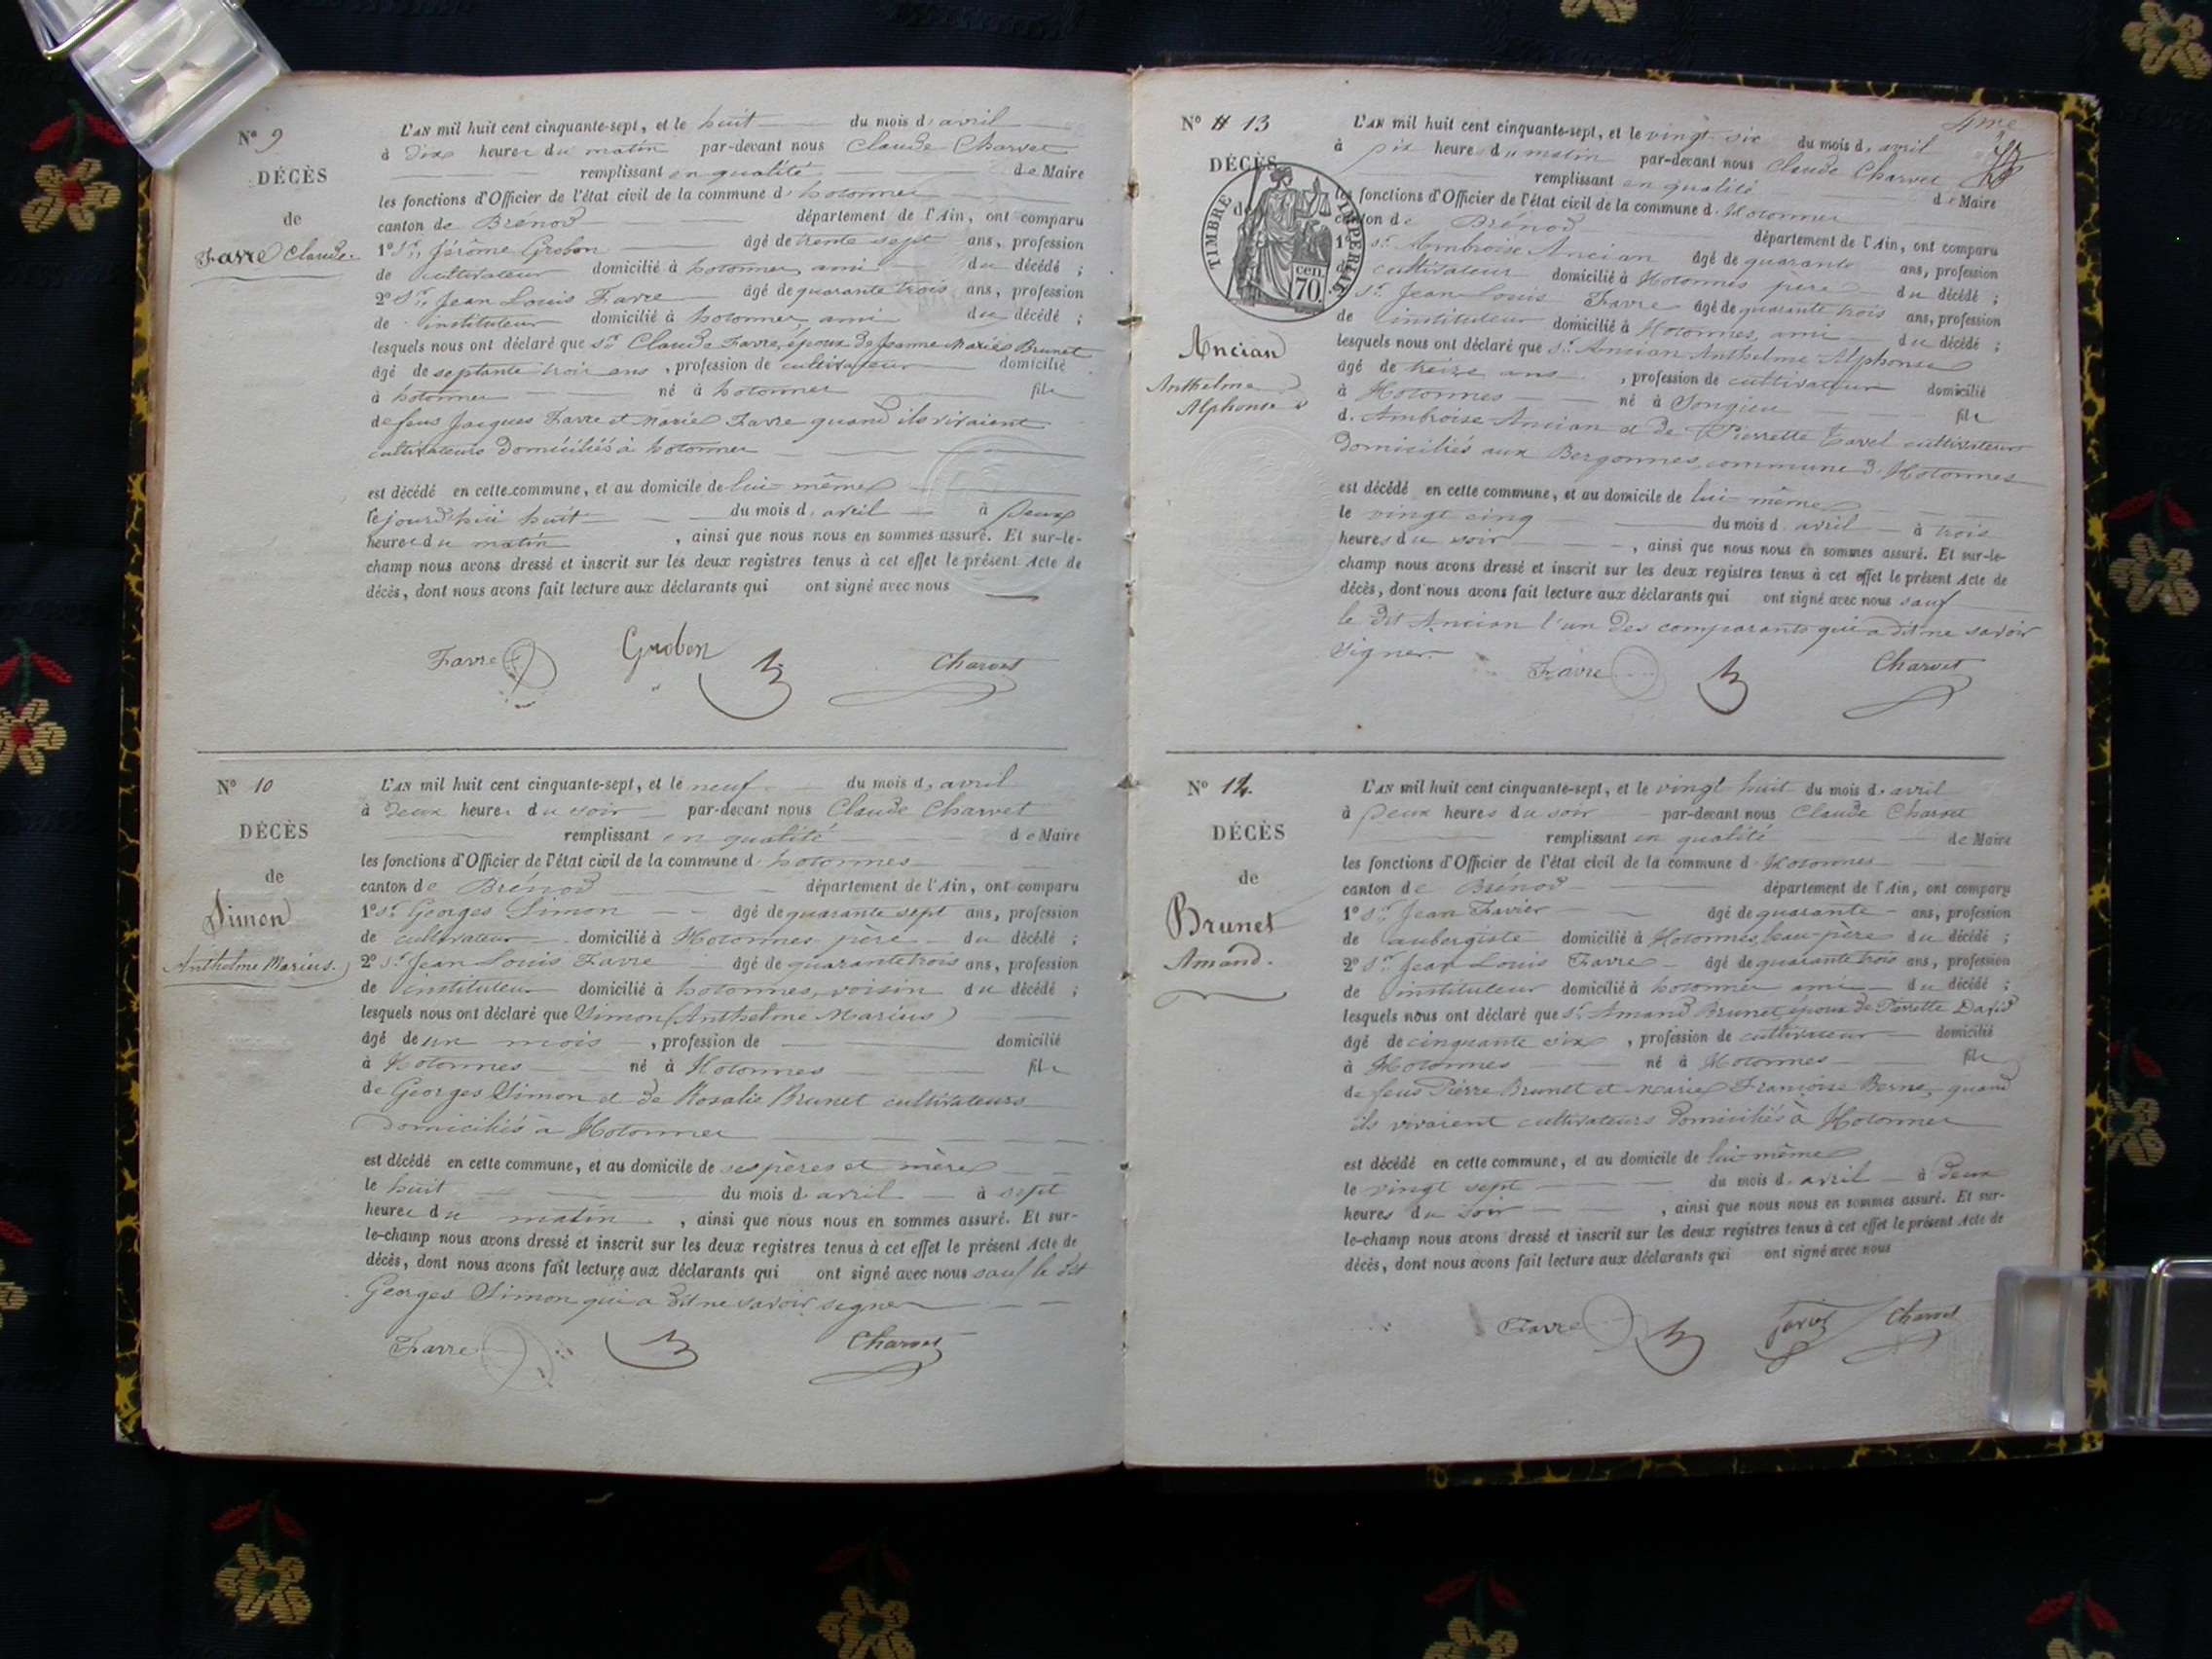 N° 9
DÉCÈS
de
Favre Claude.
L'AN mil huit cent cinquante-sept, et le huit du mois d'avril
à dix heures du matin par-devant nous Claude Charvet
remplissant en qualité de Maire
les fonctions d'Officier de l'état civil de la commune d'hotonnes
canton de Brénod département de l'Ain, ont comparu
1° Sr. Jérôme Grobon âgé de trente sept ans, profession
de cultivateur domicilié à hotonnes, ami du décédé ;
2° Sr. Jean Louis Favre âgé de quarante trois ans, profession
de instituteur domicilié à hotonnes, ami du décédé ;
lesquels nous ont déclaré que Sr. Claude Favre, époux de Jeanne Marie Brunet
âgé de septante trois ans, profession de cultivateur domicilié
à hotonnes né à hotonnes fils
de feus Jacques Favre et Marie Favre quand ils vivaient
cultivateurs domiciliés à hotonnes
est décédé en cette commune, et au domicile de lui-même
le jourd'hui huit du mois d'avril à deux
heures du matin, ainsi que nous nous en sommes assuré. Et sur-le-
champ nous avons dressé et inscrit sur les deux registres tenus à cet effet le présent Acte de
décès, dont nous avons fait lecture aux déclarants qui ont signé avec nous
Favre Grobon Charvet
N° 10
DÉCÈS
de
Simon
Anthelme Marius.
L'AN mil huit cent cinquante-sept, et le neuf du mois d'avril
à deux heures du soir par-devant nous Claude Charvet
remplissant en qualité de Maire
les fonctions d'Officier de l'état civil de la commune d'hotonnes
canton de Brénod département de l'Ain, ont comparu
1° Sr. Georges Simon âgé de quarante sept ans, profession
de cultivateur domicilié à Hotonnes père du décédé ;
2° Sr. Jean Louis Favre âgé de quarante trois ans, profession
de instituteur domicilié à hotonnes, voisin du décédé ;
lesquels nous ont déclaré que Simon (Anthelme Marius)
âgé de un mois, profession de domicilié
à Hotonnes né à Hotonnes fils
de Georges Simon et de Rosalie Brunet cultivateurs
domiciliés à Hotonnes
est décédé en cette commune, et au domicile de ses pères et mère
le huit du mois d'avril à sept
heures du matin, ainsi que nous nous en sommes assuré. Et sur-
le-champ nous avons dressé et inscrit sur les deux registres tenus à cet effet le présent Acte de
décès, dont nous avons fait lecture aux déclarants qui ont signé avec nous sauf le dit
Georges Simon qui a dit ne savoir signer
Favre Charvet
4me
N° 13
DÉCÈS
de
TIMBRE IMPERIALE
70. cen
Ancian
Anthelme
Alphonse
L'AN mil huit cent cinquante-sept, et le vingt six du mois d'avril
à six heures du matin par-devant nous Claude Charvet
remplissant en qualité de Maire
les fonctions d'Officier de l'état civil de la commune d'Hotonnes
canton de Brénod département de l'Ain, ont comparu
1° Sr. Ambroise Ancian âgé de quarante ans, profession
de cultivateur domicilié à Hotonnes père du décédé ;
Sr. Jean Louis Favre âgé de quarante trois ans, profession
de instituteur domicilié à Hotonnes, ami du décédé ;
lesquels nous ont déclaré que Sr. Ancian Anthelme Alphonse
âgé de treize ans, profession de cultivateur domicilié
à Hotonnes né à Songieu fils
d'Ambroise Ancian et de Pierrette Tavel cultivateurs
domiciliés aux Bergonnes, commune d'Hotonnes
est décédé en cette commune, et au domicile de lui-même
le vingt cinq du mois d'avril à trois
heures du soir, ainsi que nous nous en sommes assuré. Et sur-le-
champ nous avons dressé et inscrit sur les deux registres tenus à cet effet le présent Acte de
décès, dont nous avons fait lecture aux déclarants qui ont signé avec nous sauf
le dit Ancian l'un des comparants qui a dit ne savoir
signer.
Favre Charvet
N° 14.
DÉCÈS
de
Brunet
Amand.
L'AN mil huit cent cinquante-sept, et le vingt huit du mois d'avril
à deux heures du soir par-devant nous Claude Charvet
remplissant en qualité de Maire
les fonctions d'Officier de l'état civil de la commune d'Hotonnes
canton de Brénod département de l'Ain, ont comparu
1° Sr. Jean Favier âgé de quarante ans, profession
de aubergiste domicilié à Hotonnes, beau-père du décédé ;
2° Sr. Jean Louis Favre âgé de quarante trois ans, profession
de instituteur domicilié à hotonnes ami du décédé ;
lesquels nous ont déclaré que Sr. Amand Brunet, époux de Pierrette David
âgé de cinquante six, profession de cultivateur domicilié
à Hotonnes né à Hotonnes fils
de feus Pierre Brunet et Marie Françoise Berne, quand
ils vivaient cultivateurs domiciliés à Hotonnes
est décédé en cette commune, et au domicile de lui-même
le vingt sept du mois d'avril à deux
heures du soir, ainsi que nous nous en sommes assuré. Et sur-
le-champ nous avons dressé et inscrit sur les deux registres tenus à cet effet le présent Acte de
décès, dont nous avons fait lecture aux déclarants qui ont signé avec nous
Favre Favier Charvet